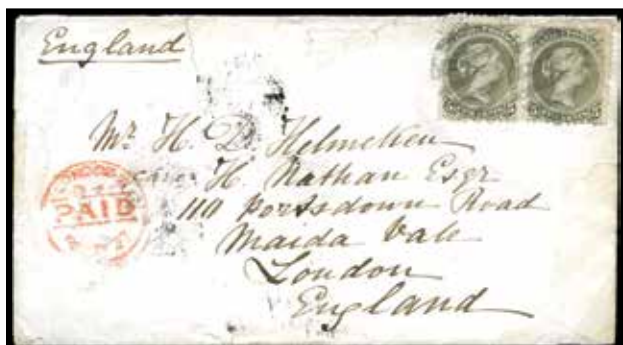 England
Mr. H. D. Helmcken
care H. Nathan Esqr
110 Portsdown Road
Maida Vale
London
England
LONDON
PAID